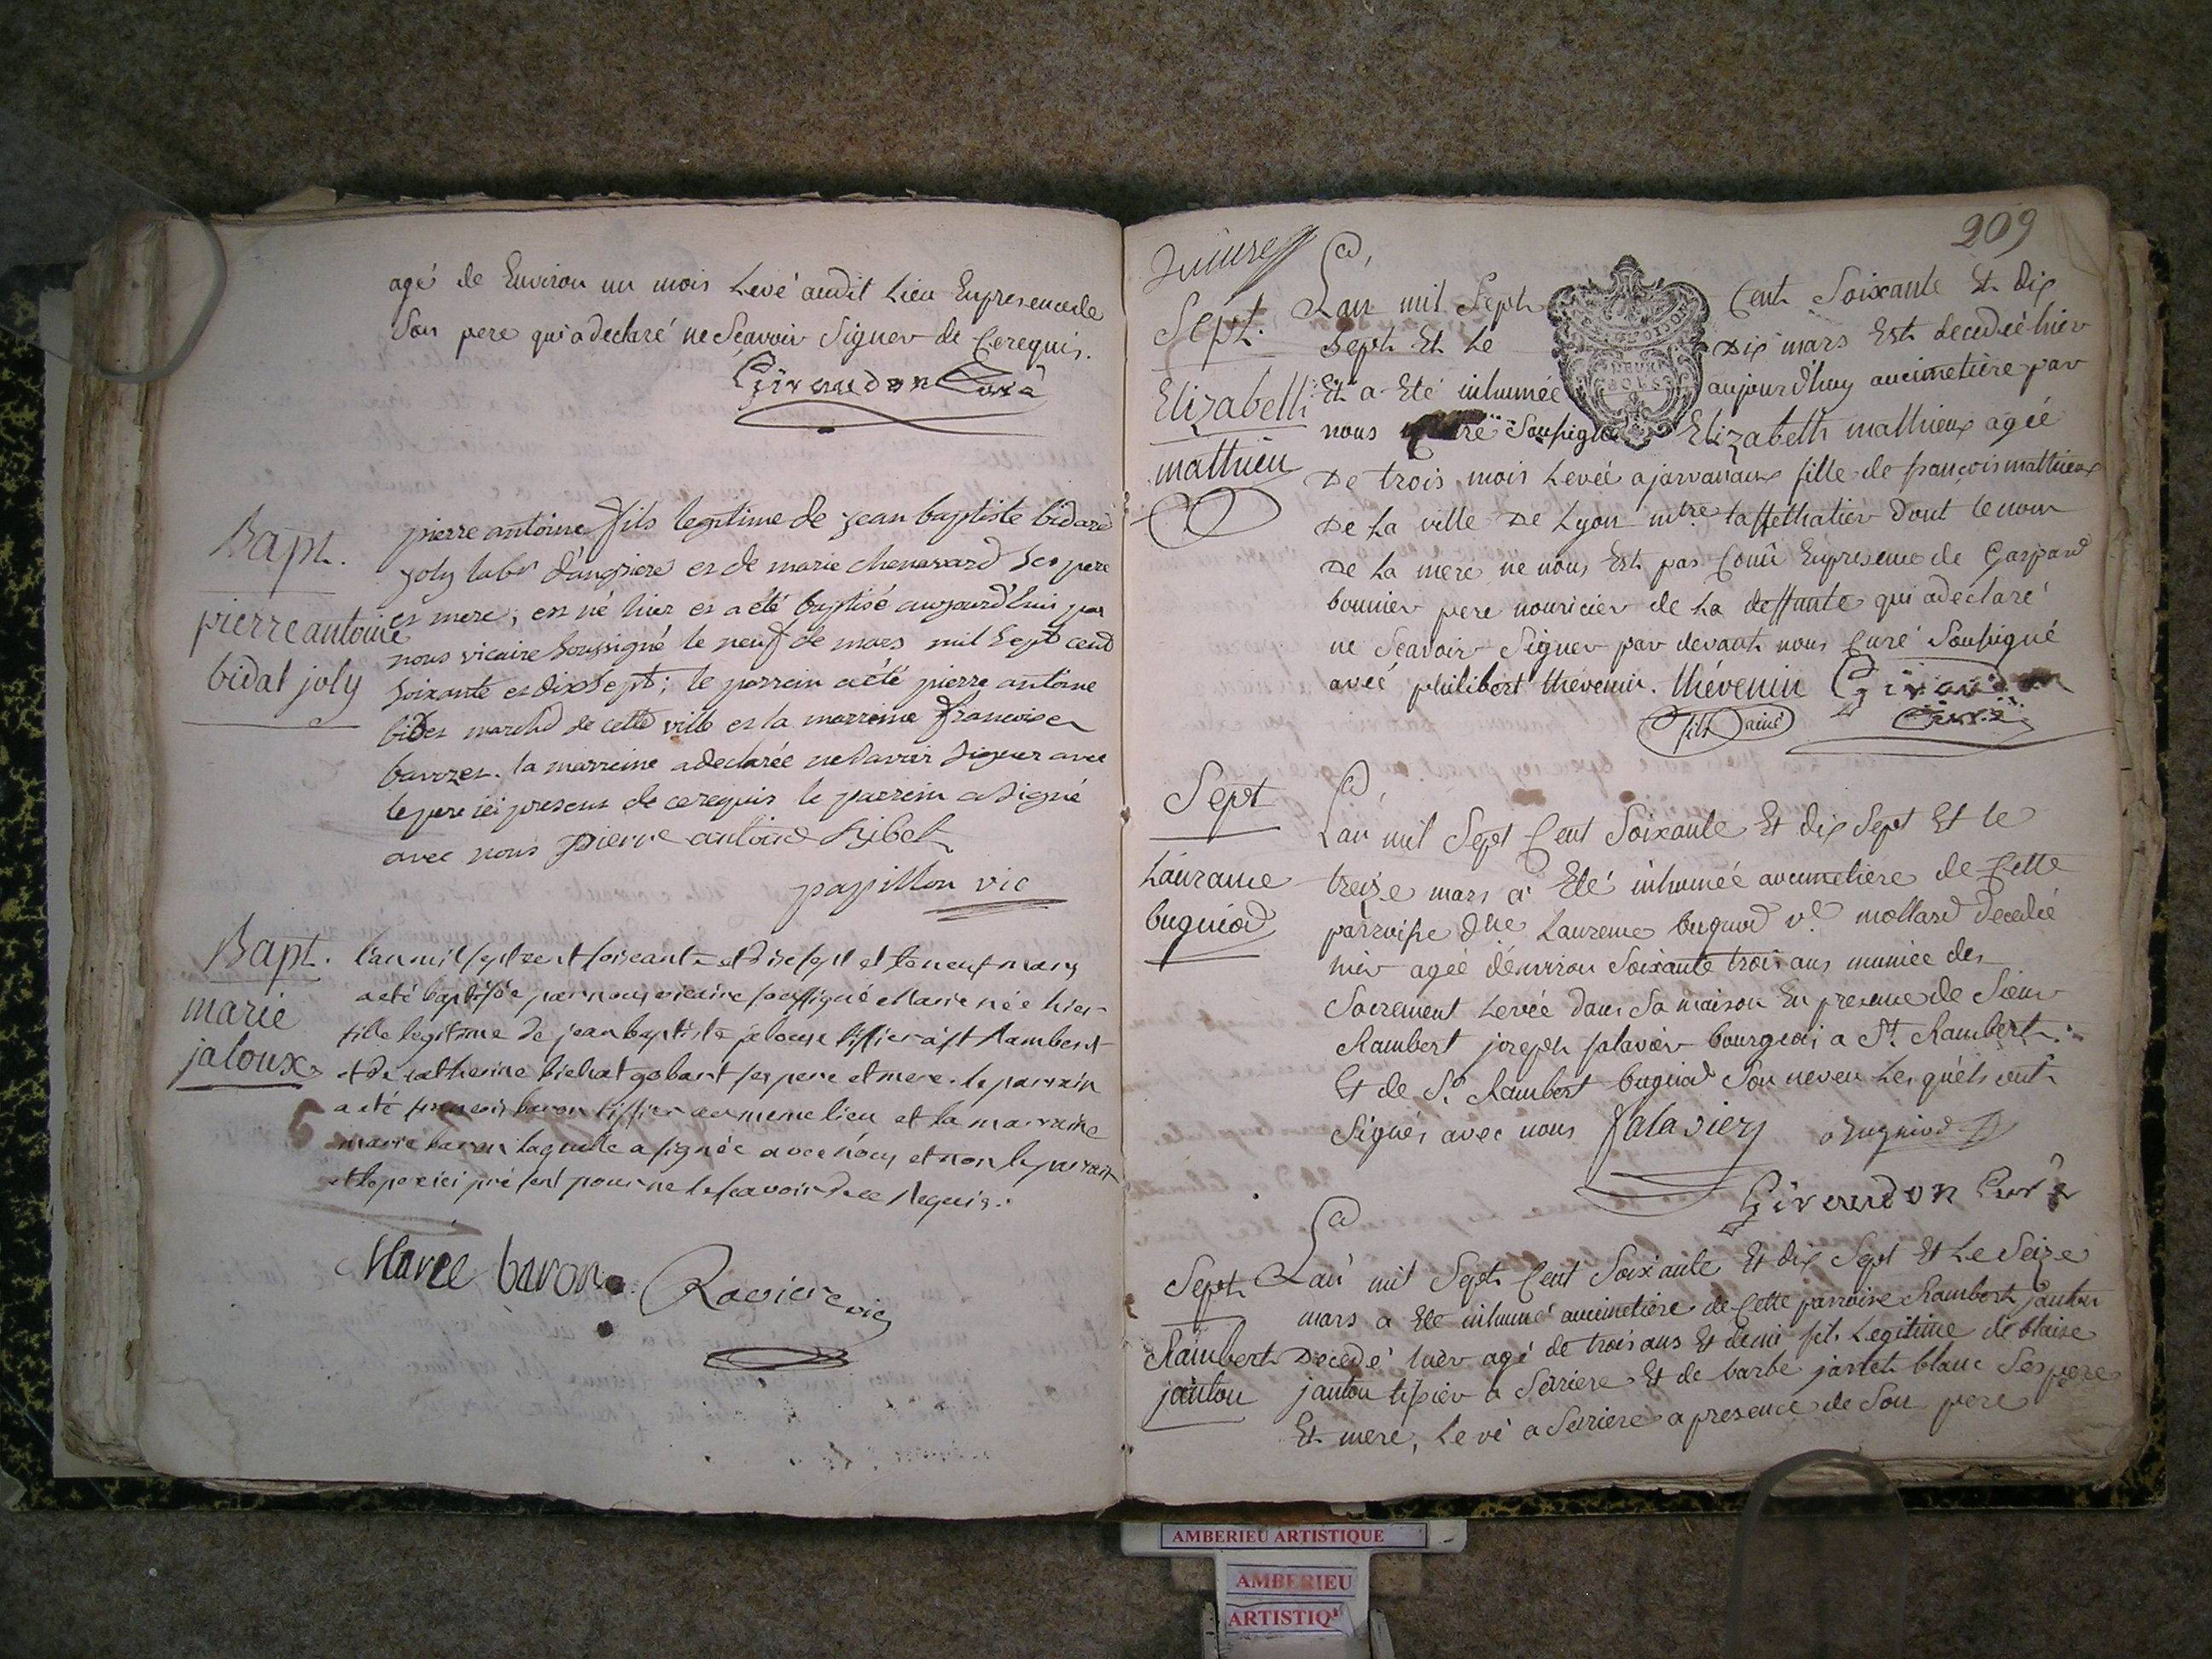 agé de Environ un mois Levé audit Lieu En presence de
Son pere qui a declaré ne Sçavoir Signer de Ce requis.
Girauldon Curé
Bapt.
pierre antoine
bidal joly
pierre antoine fils legitime de jean baptiste bidard
joly labr d'angriere et de marie chenavard Ses pere
et mere, est né hier et a été baptisé aujourd'hui par
nous vicaire Soussigné le neuf de mars mil Sept cent
Soixante et dix Sept; le parrein a été pierre antoine
marchd de cette ville et la marreine francoise
la marreine a declarée ne Savoir Signer avec
le pere ici present de ce requis le parrein a Signé
avec nous pierre antoine
papillon vic
Bapt.
marie
jaloux
l'an mil sept cent soixante et dix sept et le neuf mars
a eté baptisée par nous vicaire soussigné Marie née hier
fille legitime de jean baptiste jaloux tissier a st Rambert
et de catherine bichat gobant ses pere et mere. le parrain
a eté francois baron tissier au meme lieu et la marraine
marie baron laquelle a signée avec nous et non le parrain
et le pere ici présent pour ne le scavoir de ce Requis.
Marie baron Ravier vic
209
Sept.
Elizabeth
mathieu
Lan mil Sept Cent Soixante Et dix
Sept Et Le Dix mars Est decedée hier
Et a Eté inhumée aujourd'huy au cimetière par
nous Soussigné Elizabeth mathieux agée
De trois mois Levée a jarvanaux fille de françois mathieux
De La ville De Lyon mtre taffethatier dont le nom
De La mere ne nous Est pas Connu En presence de Gaspard
bonnier pere nouricier de La deffunte qui a declaré
ne Scavoir Signer par devant nous Curé Soussigné
avec philibert thevenin. thévenin Girauldon
fils ainé Curé
Sept
Laurance
bugniod
Lan mil Sept Cent Soixante Et dix Sept Et le
treize mars a Eté inhumée au cimetière de Cette
parroisse dlle Laurence bugniod ve mollard decedée
hier agée d'environ Soixante trois ans muniée des
Sacrement Levée dans Sa maison En presence de Sieur
Rambert joseph falavier bourgeois a St. Rambert
Et de Sr. Rambert bugniod Son neveu Lesquels ont
Signés avec nous falavier bugniod
Girauldon Curé
Sept
Rambert
jantou
Lan mil Sept Cent Soixante Et dix Sept Et Le Seize
mars a Eté inhumé au cimetière de Cette parroisse Rambert jantou
Decedé hier agé de trois ans Et demi fils Legitime de blaise
jantou tissier a Serriere Et de barbe jantet blanc Ses pere
Et mere, Levé a Serriere a presence de Son pere
AMBERIEU ARTISTIQUE
AMBERIEU
ARTISTIQ